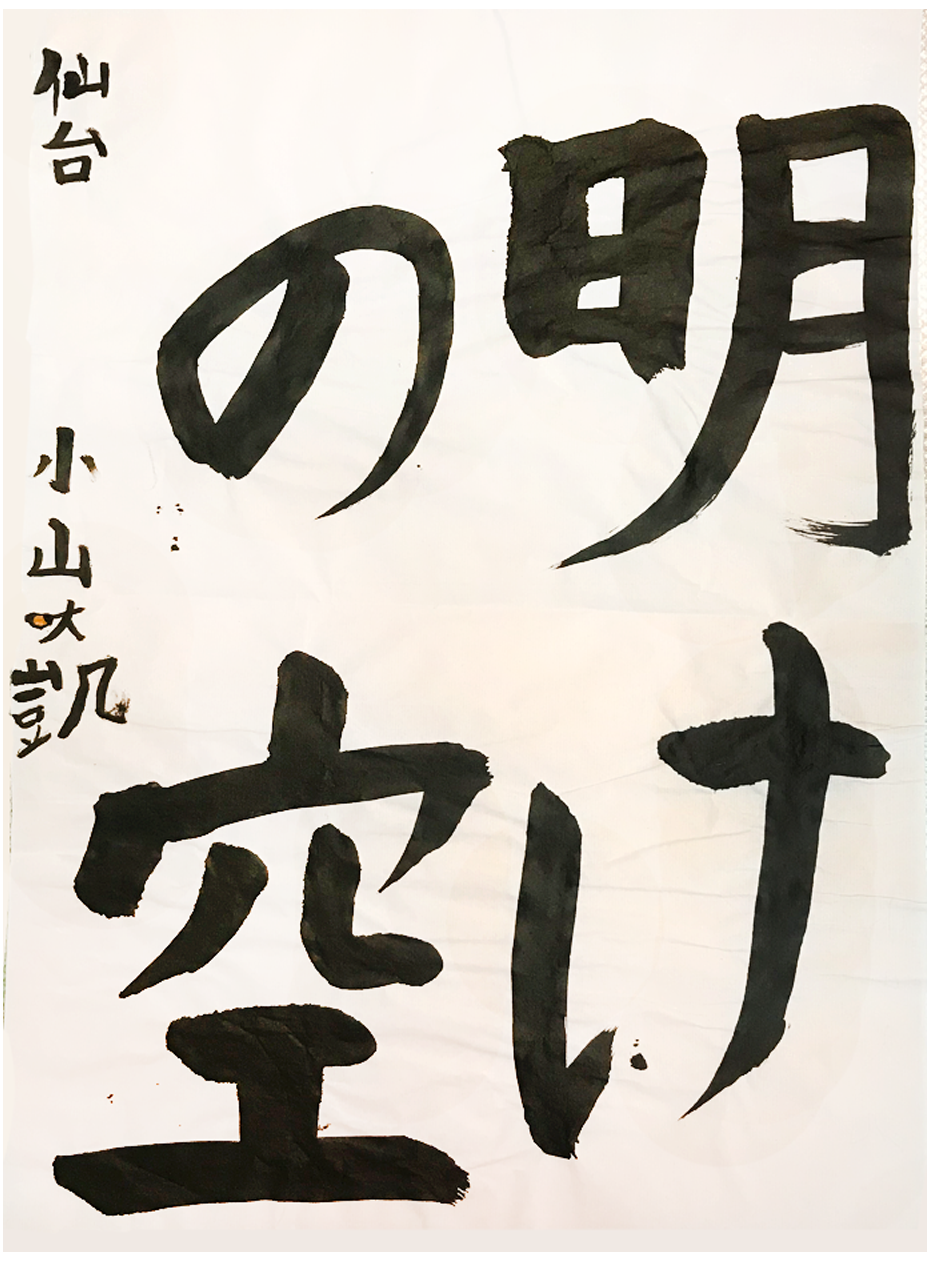 明け
の空
仙台 小山吠凱